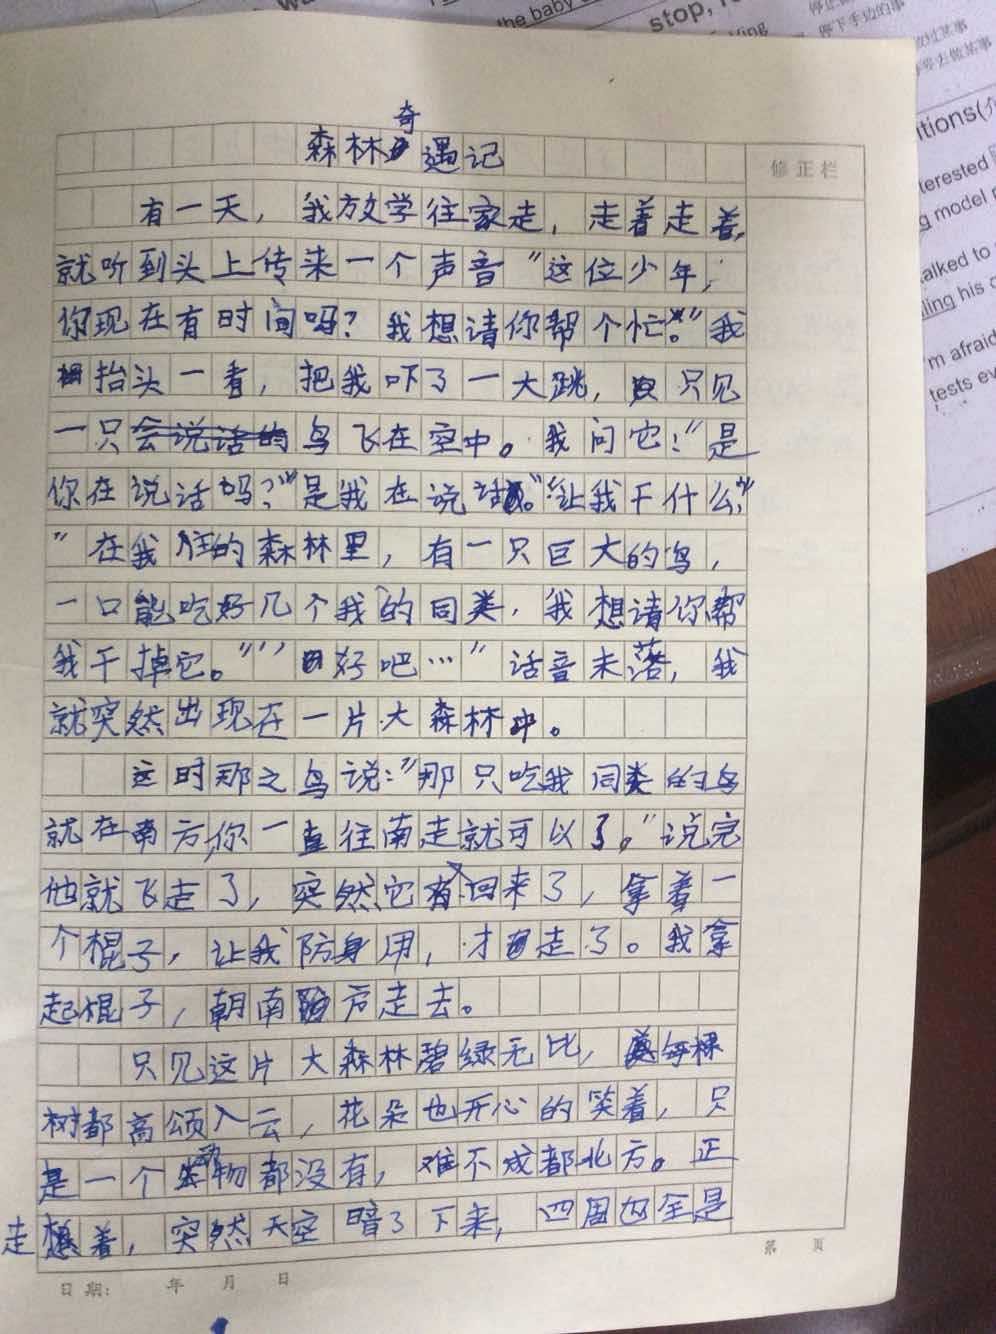 the baby
stop,
停下手边的事
做过某事
要去做某事
itions(
terested
g model
talked to
ling his
'm afraid
tests ev
森林奇遇记
修正栏
有一天，我放学往家走，走着走着，
就听到头上传来一个声音“这位少年，
你现在有时间吗？我想请你帮个忙。”我
抬头一看，把我吓了一大跳，只见
一只鸟飞在空中。我问它：“是
你在说话吗？”“是我在说话。”“让我干什么，”
“在我住的森林里，有一只巨大的鸟，
一口能吃好几个我的同类，我想请你帮
我干掉它。”“好吧…”话音未落，我
就突然出现在一片大森林中。
这时那之鸟说：“那只吃我同类的鸟
就在南方，你一直往南走就可以了。”说完
他就飞走了，突然它又回来了，拿着一
个棍子，让我防身用，才走了。我拿
起棍子，朝南方走去。
只见这片大森林碧绿无比，每棵
树都高颂入云，花朵也开心的笑着，只
是一个动物都没有，难不成都北方。正
走想着，突然天空暗了下来，四周也全是
第 页
日期： 年 月 日